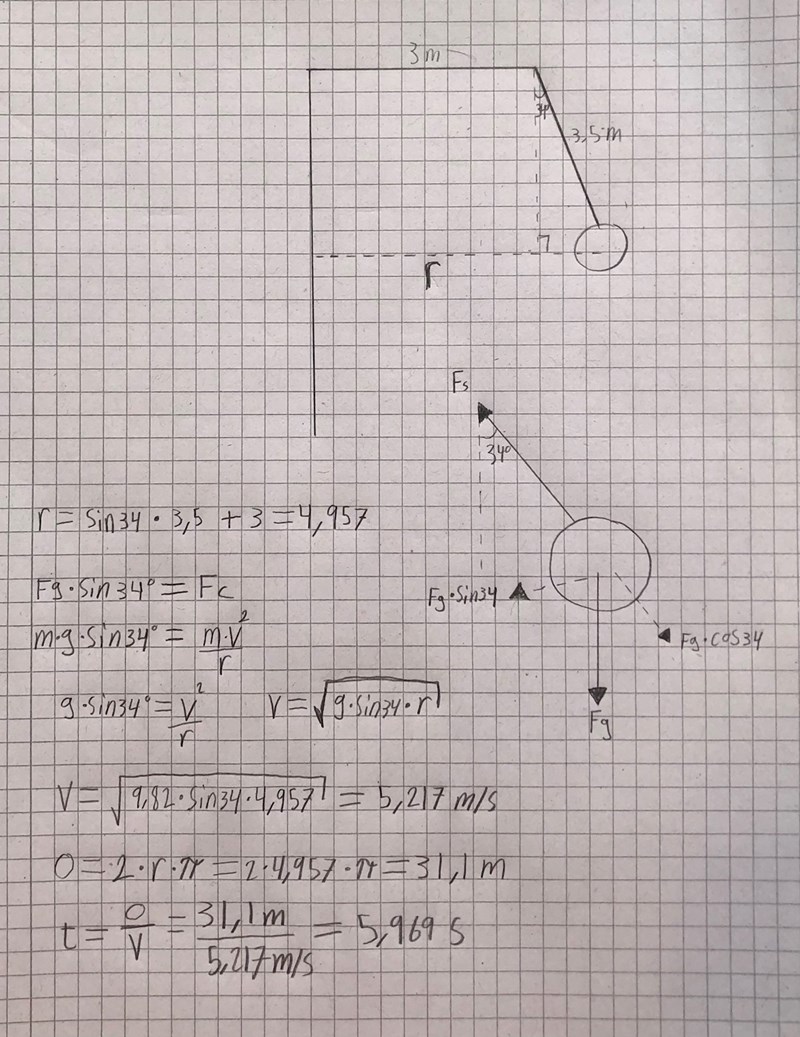 3m
34°
3,5m
r
Fs
34°
r = sin34 · 3,5 + 3 = 4,957
Fg·sin34° = Fc
Fg·sin34
Fg·cos34
m·g·sin34° = m·v²/r
g·sin34° = v²/r V = √g·sin34·r
Fg
V = √9,82·sin34·4,957 = 5,217 m/s
O = 2·r·π = 2·4,957·π = 31,1 m
t = O/V = 31,1m/5,217m/s = 5,969 s